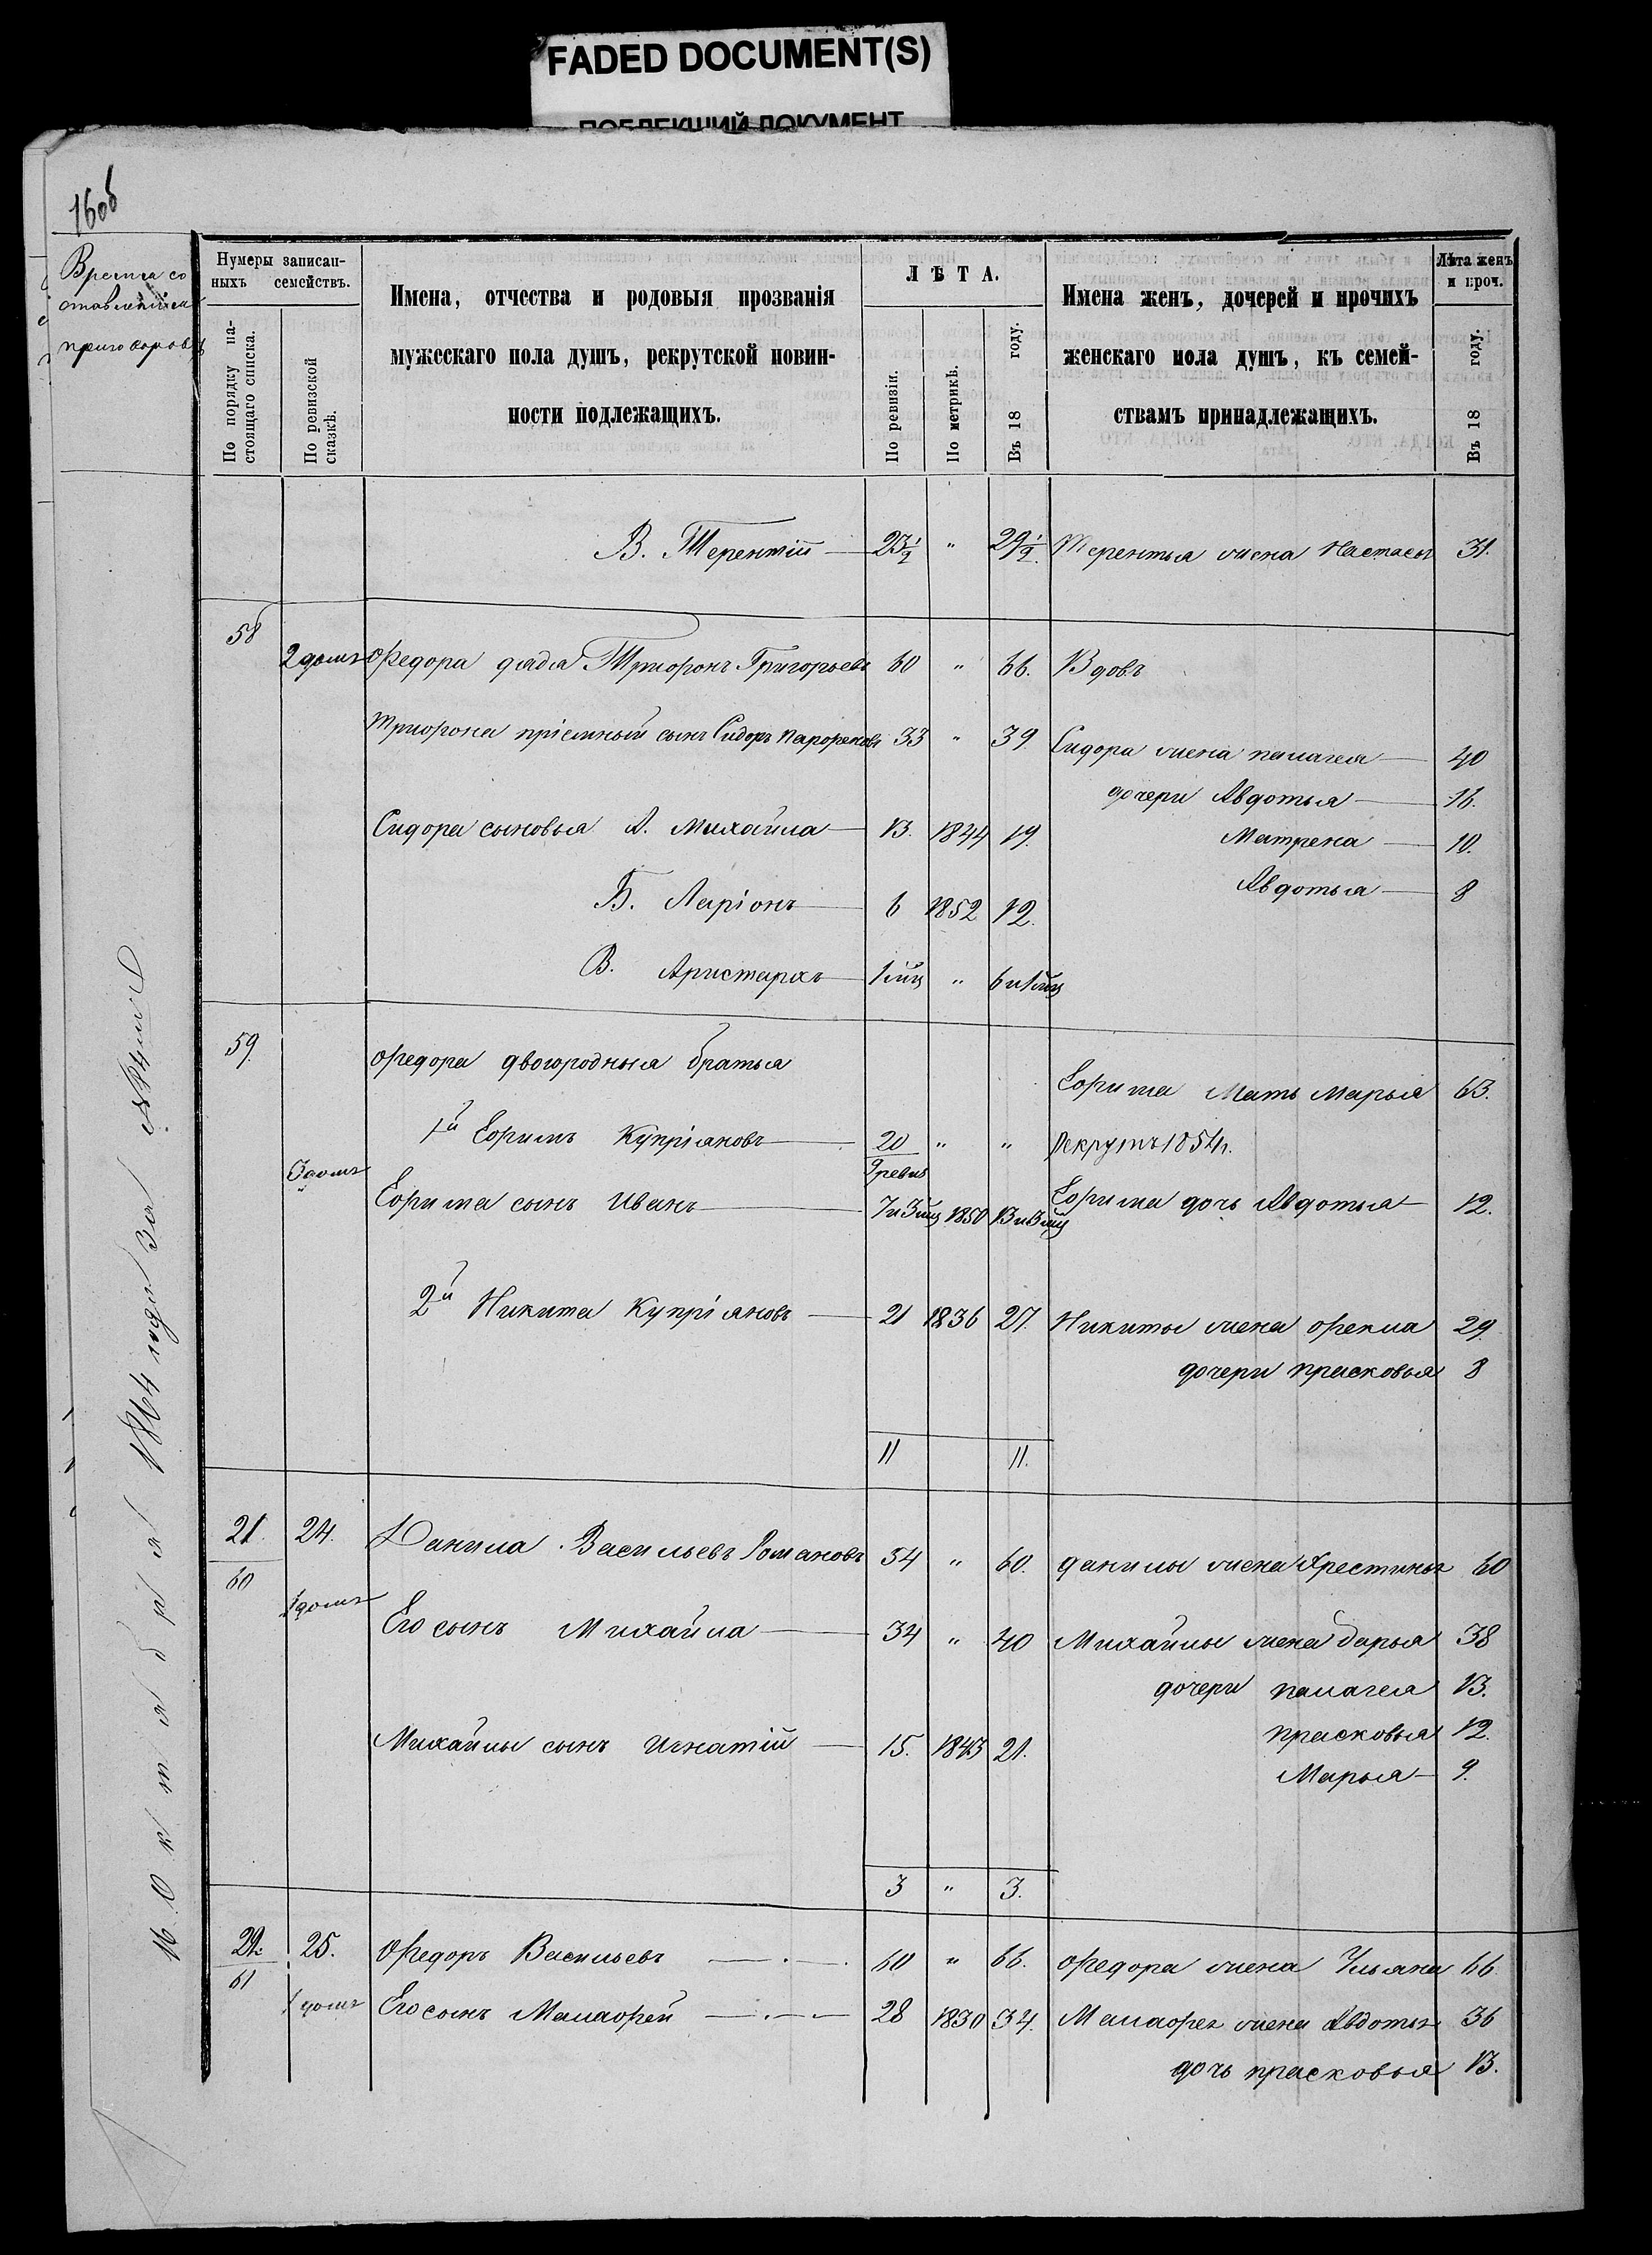 FADED DOCUMENT(S)
ПОБЛЕКШИЙ ДОКУМЕНТ
16об
Время со
ставления
приговоровъ
Нумеры записан-
ныхъ семействъ.
По порядку на-
стоящаго списка.
По ревизской
сказкѣ.
Имена, отчества и родовыя прозванія
мужескаго пола душъ, рекрутской повин-
ности подлежащихъ.
ЛѢТА.
По ревизіи.
По метрикѣ.
Въ 18 году.
Имена женъ, дочерей и прочихъ
женскаго пола душъ, къ семей-
ствамъ принадлежащихъ.
Лѣта женъ
и проч.
Въ 18 году.
16 Октября 1864 года За №
В. Терентій 23½ " 29½ Терентья жена Настасья 31.
58
2 домъ Федора дядя Трифонъ Григорьевъ 60 " 66. Вдовъ
Трифона пріемный сынъ Сидоръ Парфеновъ 33 " 39 Сидора жена Палагея 40
дочери Авдотья 16.
Сидора сыновья А. Михайла 13. 1844 19. Матрена 10.
Авдотья 8
Б. Ларіонъ 6 1852 12.
В. Аристархъ 1 мц " 6 и 1 мц
59
Федора двогородныя братья
Ефима Мать Марья 63.
1й Ефимъ Купріяновъ 20 " " Рекрутъ 1854 г.
9 ревиз
3 домъ
Ефима сынъ Иванъ 7 и 3 мц 1850 13 и 3 мц Ефима дочь Авдотья 12.
2й Никита Купріяновъ 21 1836 27. Никиты жена Фекла 29.
дочери Прасковья 8
11 11.
21. 24. Данила Васильевъ Романовъ 54 " 60. Данилы жена Хрестинья 60
60
1 домъ
Его сынъ Михайла 34 " 40 Михайлы жена Дарья 38
дочери Палагея 13.
Михайлы сынъ Игнатій 15. 1843 21. Прасковья 12.
Марья 9.
3 " 3.
22. 25. Федоръ Васильевъ 60 " 66. Федора жена Ульяна 66
61
1 домъ Его сынъ Малафей 28 1830 34. Малафея жена Авдотья 36
дочь Прасковья 13.